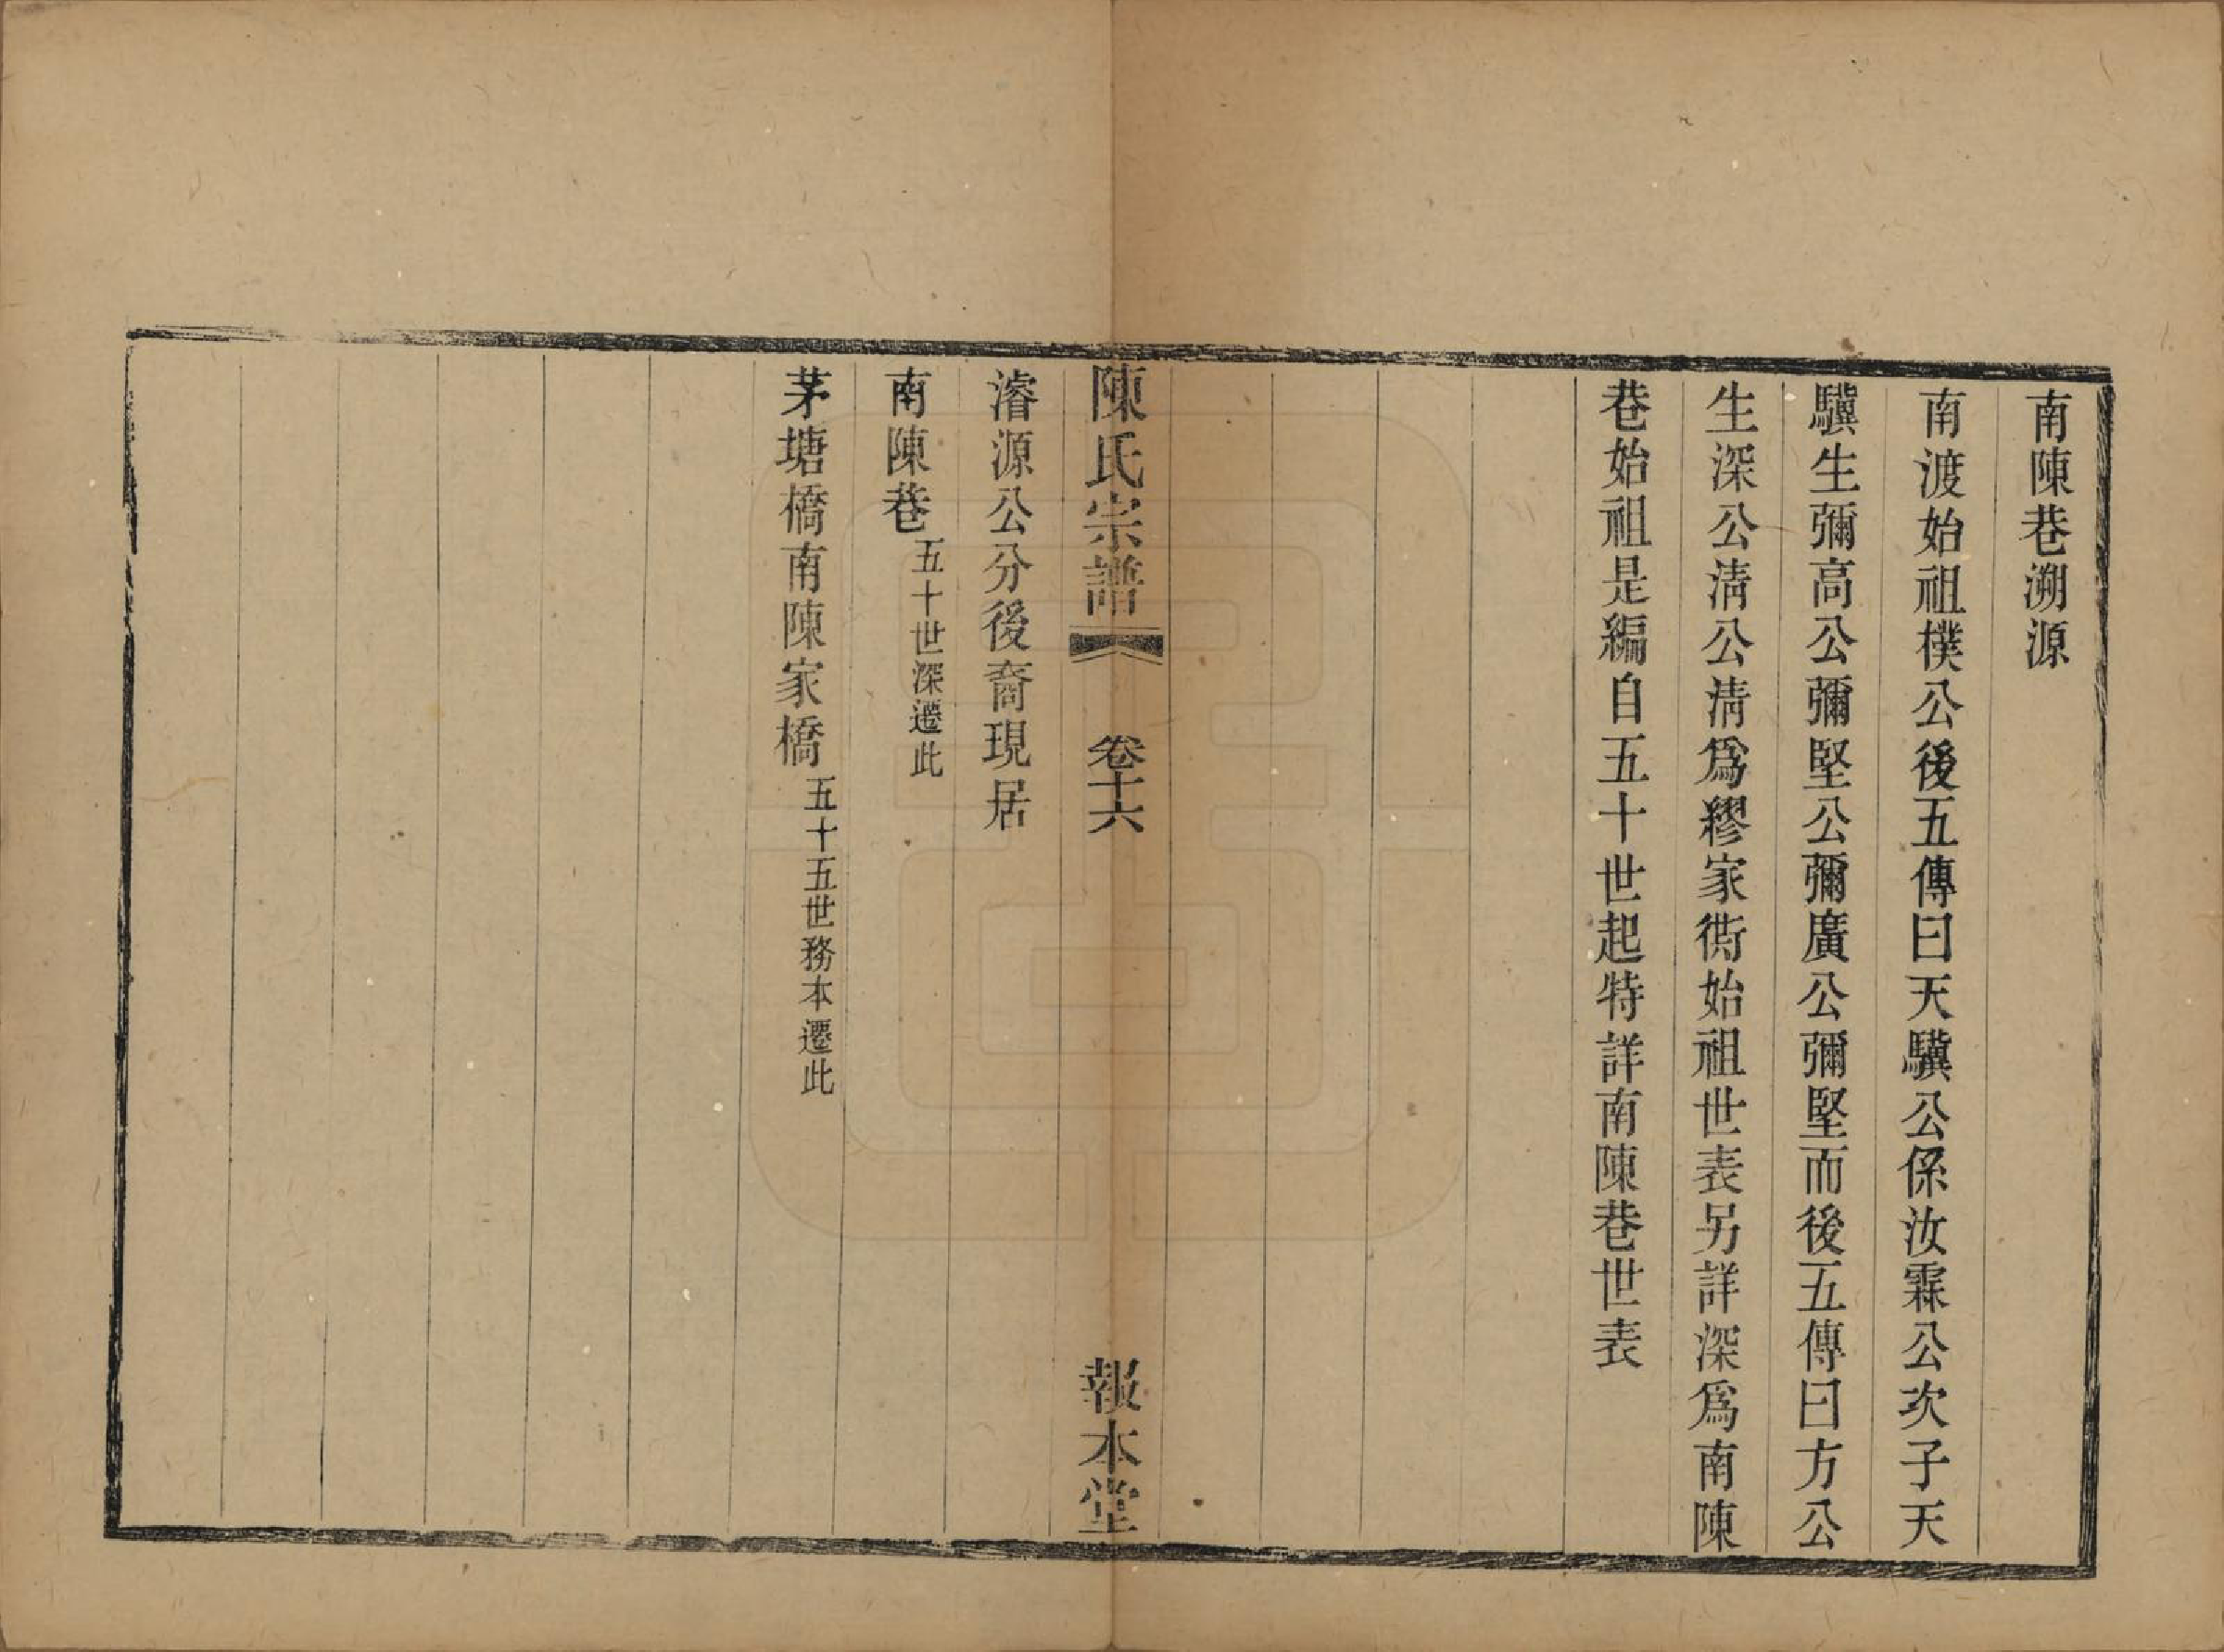 南陳巷溯源
南渡始祖樸公後五傳曰天驥公係汝霖公次子天
驥生彌高公彌堅公彌廣公彌堅而後五傳曰方公
生深公淸公淸爲繆家衖始祖世表另詳深爲南陳
巷始祖是編自五十世起特詳南陳巷世表
陳氏宗譜 卷十六 報本堂
濬源公分後裔現居
南陳巷五十世深遷此
茅塘橋南陳家橋五十五世務本遷此